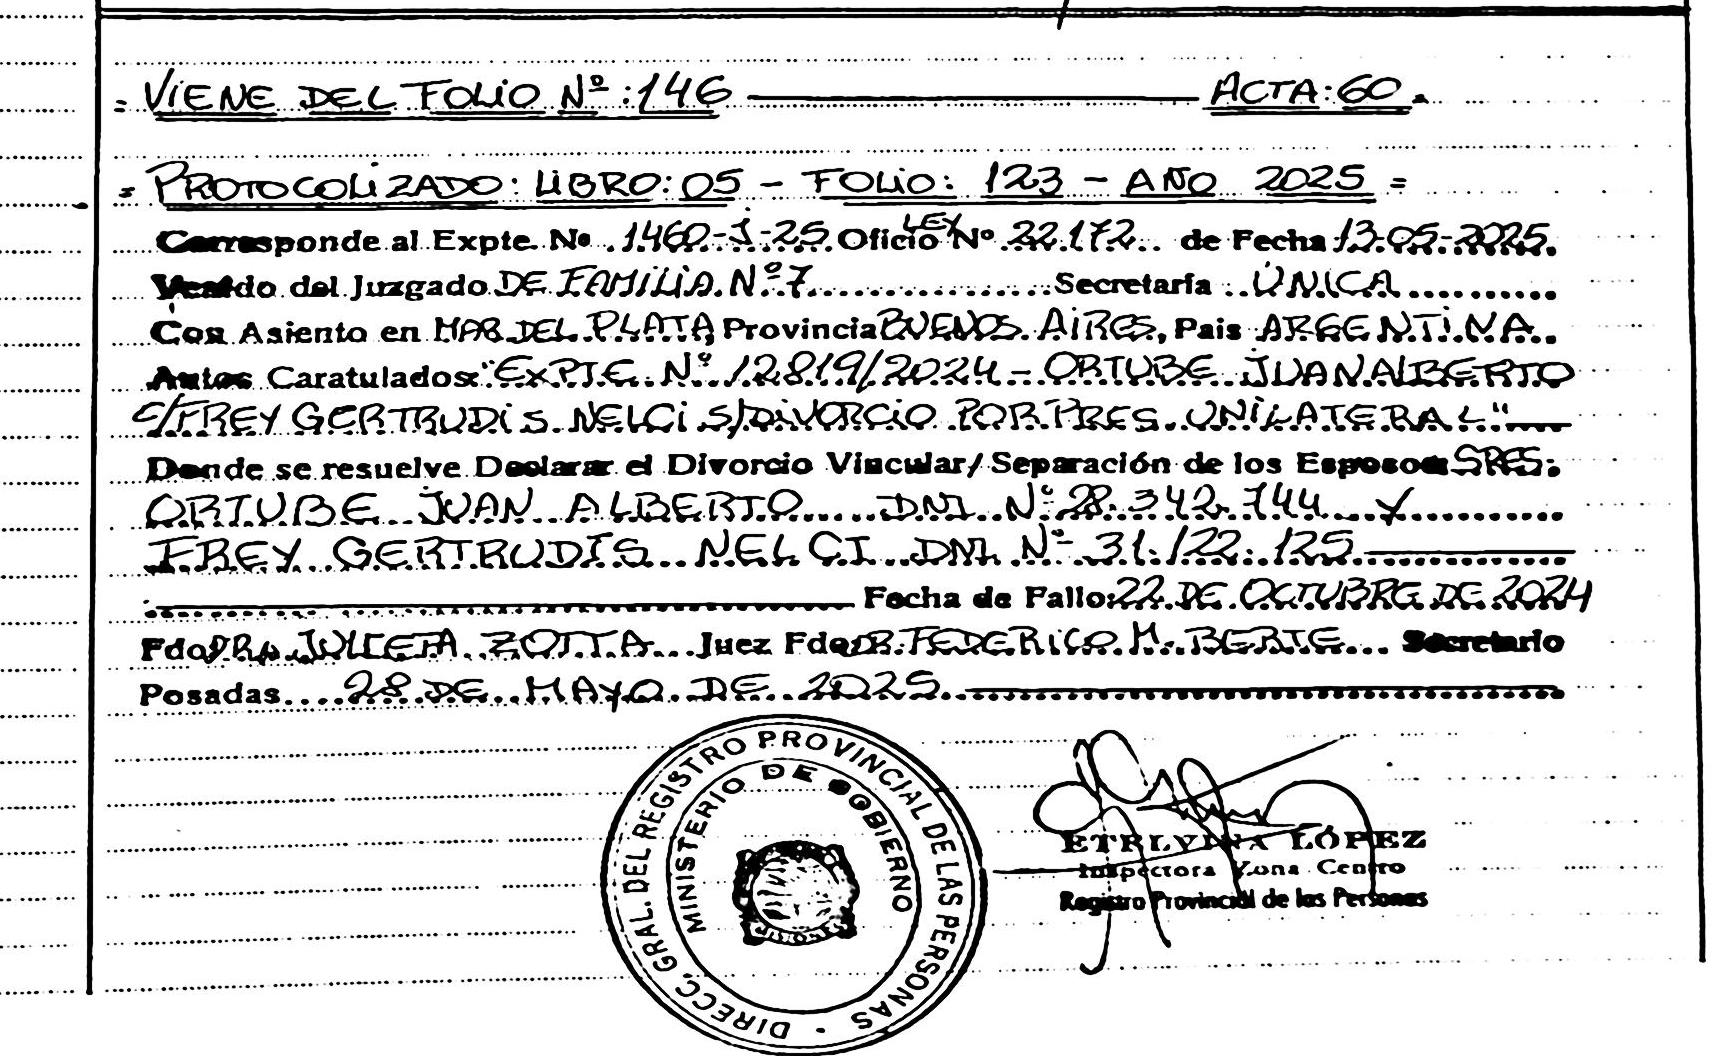 = VIENE DEL FOLIO Nº: 146 ACTA: 60.
= PROTOCOLIZADO: LIBRO: 05 - FOLIO: 123 - AÑO 2025 =
Corresponde al Expte. Nº 1460-J-25 Oficio LEY Nº 22.172 de Fecha 13-05-2025.
Venido del Juzgado DE FAMILIA Nº 7 Secretaría ÚNICA
Con Asiento en MAR DEL PLATA, Provincia BUENOS AIRES, Pais ARGENTINA.
Autos Caratulados: "EXPTE Nº 12819/2024 - ORTUBE JUAN ALBERTO
C/FREY GERTRUDIS NELCI S/DIVORCIO POR PRES. UNILATERAL"
Donde se resuelve Declarar el Divorcio Vincular/ Separación de los Esposos SRES:
ORTUBE JUAN ALBERTO DNI Nº 28.342.744 Y
FREY GERTRUDIS NELCI DNI Nº 31.122.125
Fecha de Fallo: 22 DE OCTUBRE DE 2024
Fdo DRA JULIETA ZOTTA Juez Fdo DR. FEDERICO M. BERTE Secretario
Posadas 28 DE MAYO DE 2025
DIRECC. GRAL. DEL REGISTRO PROVINCIAL DE LAS PERSONAS
MINISTERIO DE GOBIERNO
ETELVINA LÓPEZ
Inspectora Zona Centro
Registro Provincial de las Personas